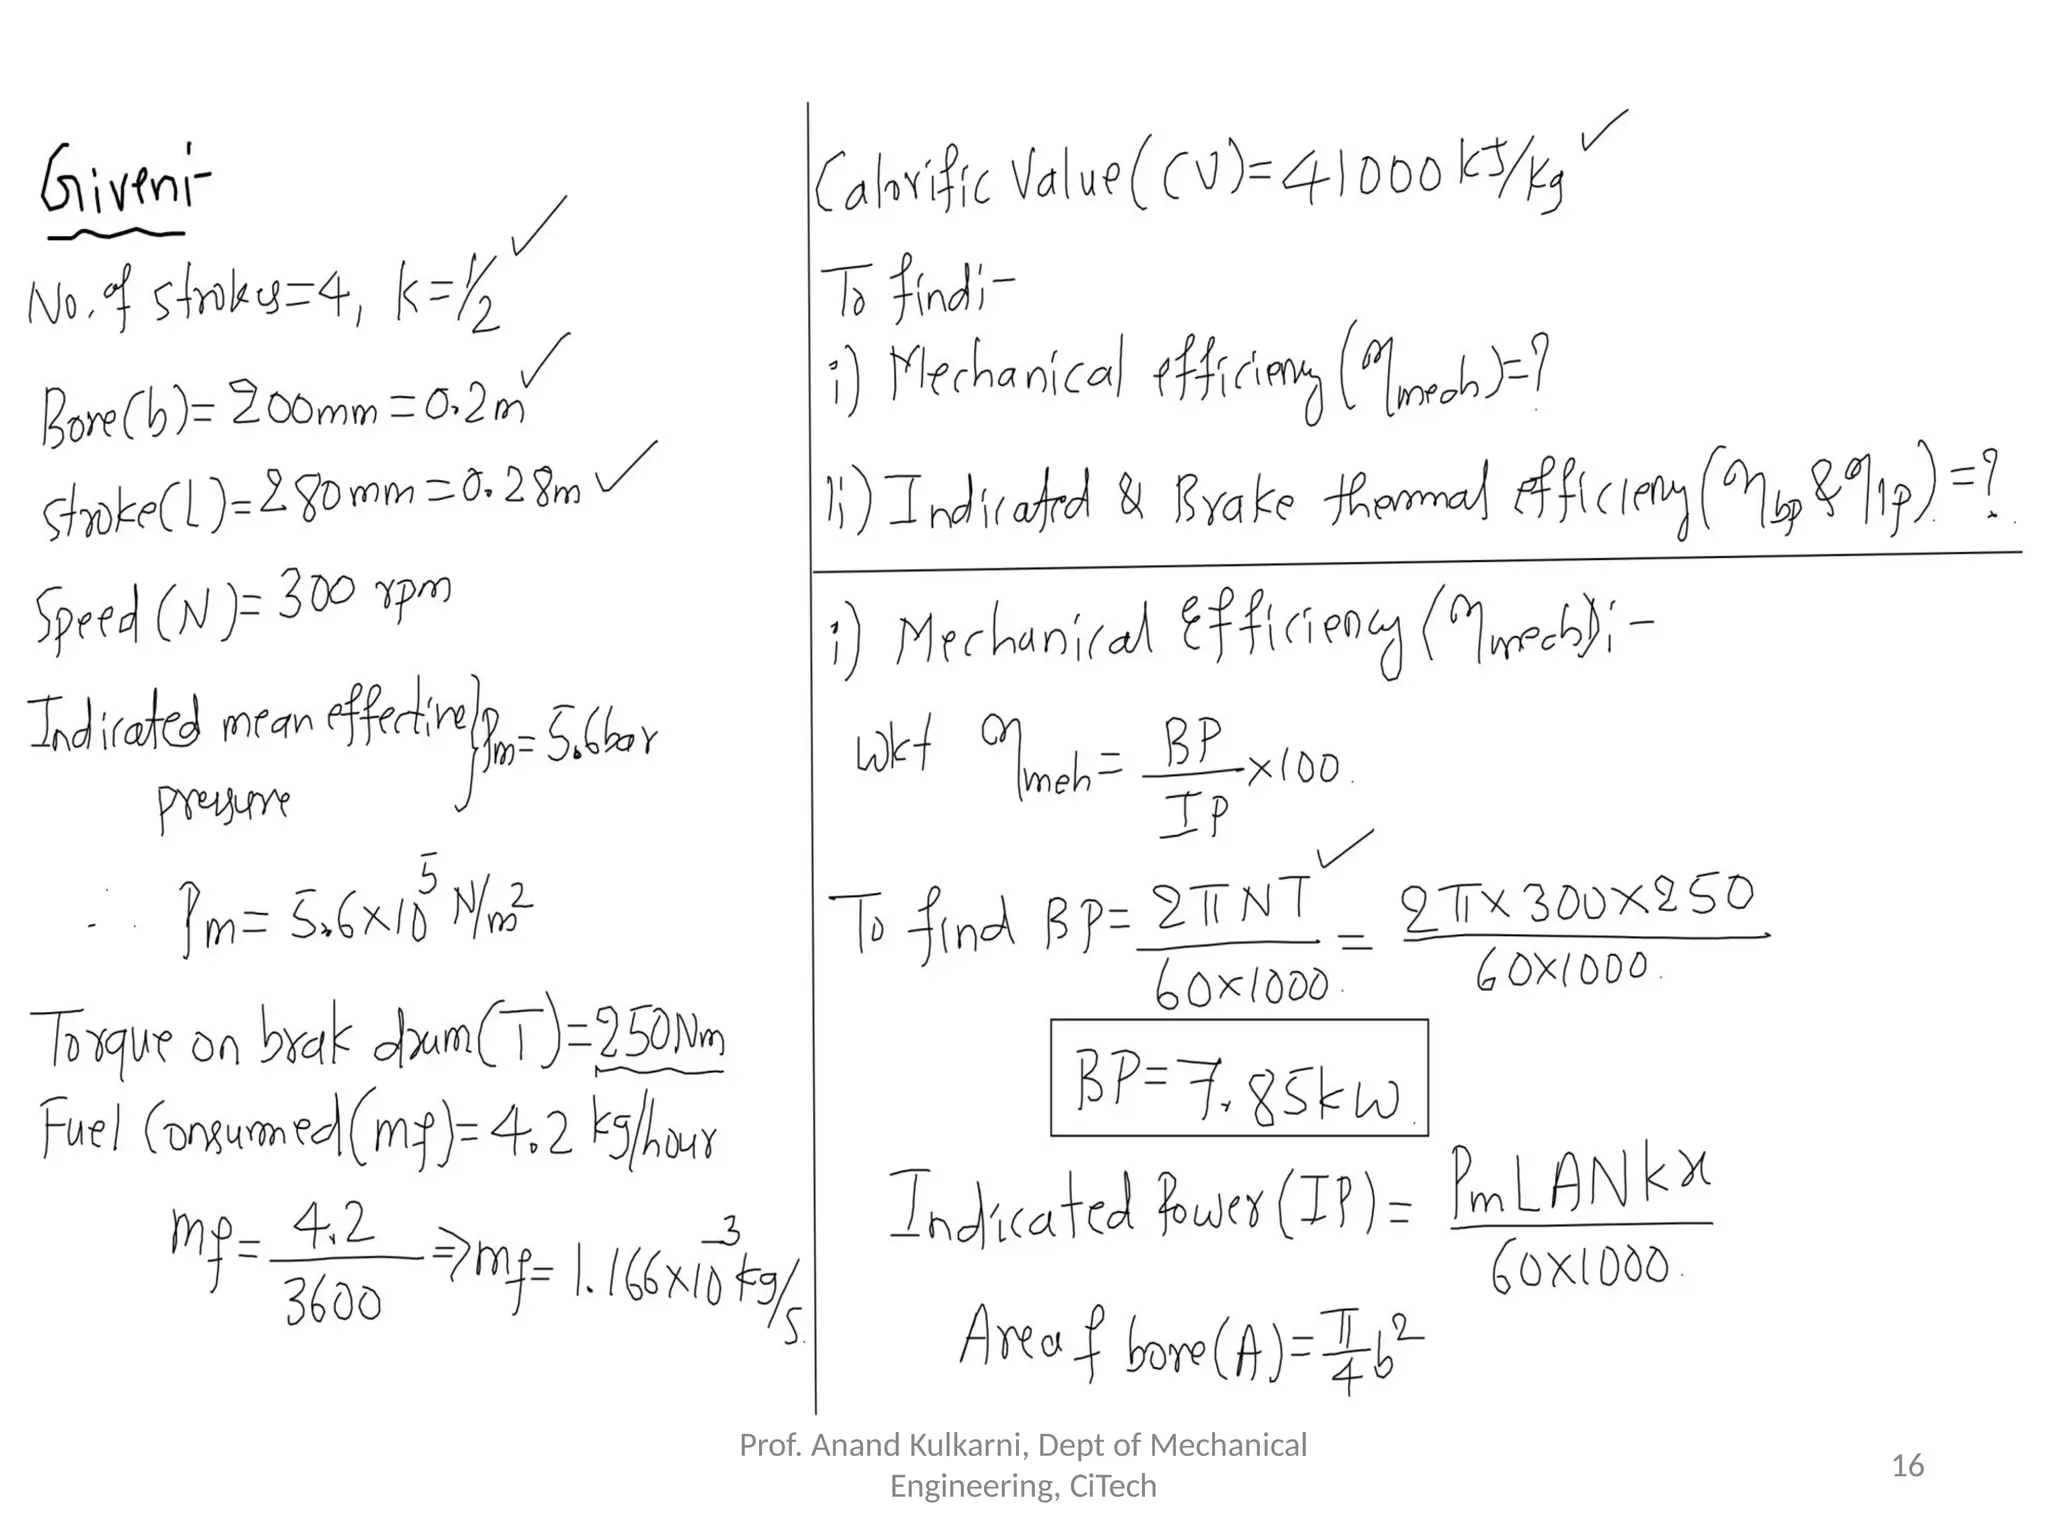 Given:-
No. of strokes = 4, k = 1/2 ✓
Bore (b) = 200mm = 0.2m ✓
Stroke (L) = 280mm = 0.28m ✓
Speed (N) = 300 rpm
Indicated mean effective pressure } Pm = 5.6bar
∴ Pm = 5.6×10⁵ N/m²
Torque on brak drum (T) = 250Nm
Fuel Consumed (mf) = 4.2 kg/hour
mf = 4.2/3600 ⇒ mf = 1.166×10⁻³ kg/s.
Calorific Value (CV) = 41000 kJ/kg ✓
To find:-
i) Mechanical efficiency (ηmech) = ?
ii) Indicated & Brake thermal efficiency (ηbp & ηIp) = ?
i) Mechanical Efficiency (ηmech):-
wkt ηmeh = BP/IP ×100.
To find BP = 2πNT/60×1000 ✓ = 2π×300×250/60×1000.
BP = 7.85kW.
Indicated Power (IP) = PmLANkx/60×1000.
Area of bore (A) = π/4 b²
Prof. Anand Kulkarni, Dept of Mechanical
Engineering, CiTech
16